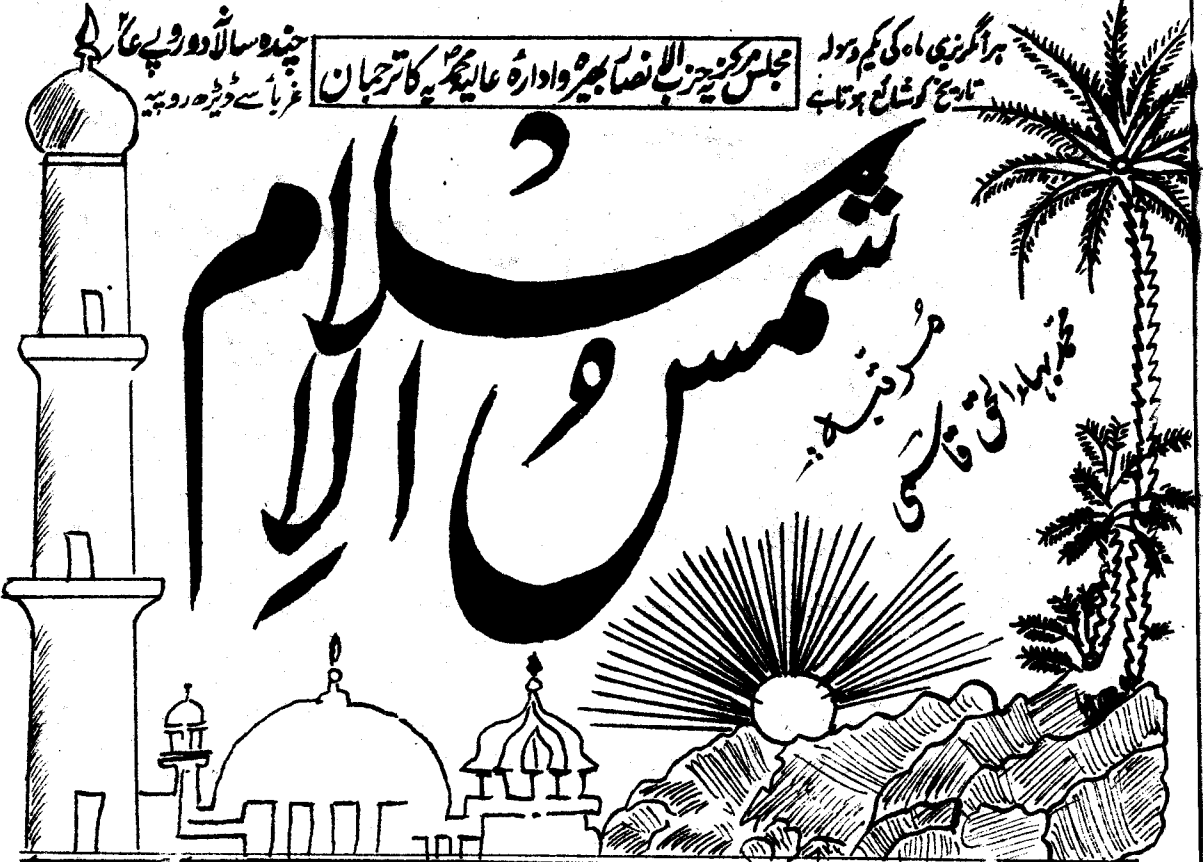 ہر انگریزی ماہ کی یکم و سولہ
تاریخ کو شائع ہوتا ہے
مجلس مرکزیہ حزب الانصار بھیرہ و ادارۂ عالیہ محمدیہ کا ترجمان
چندہ سالانہ دو روپے عا
غرباً سے ڈیڑھ روپیہ
شمس الاسلام
مرتبہ
محمد بہاء الحق قاسمی